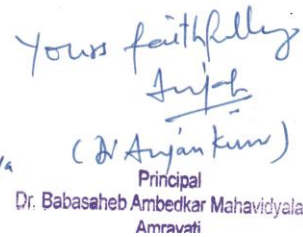 Yours faithfully
(Dr Anjan Kum)
Principal
Dr. Babasaheb Ambedkar Mahavidyala
Amravati